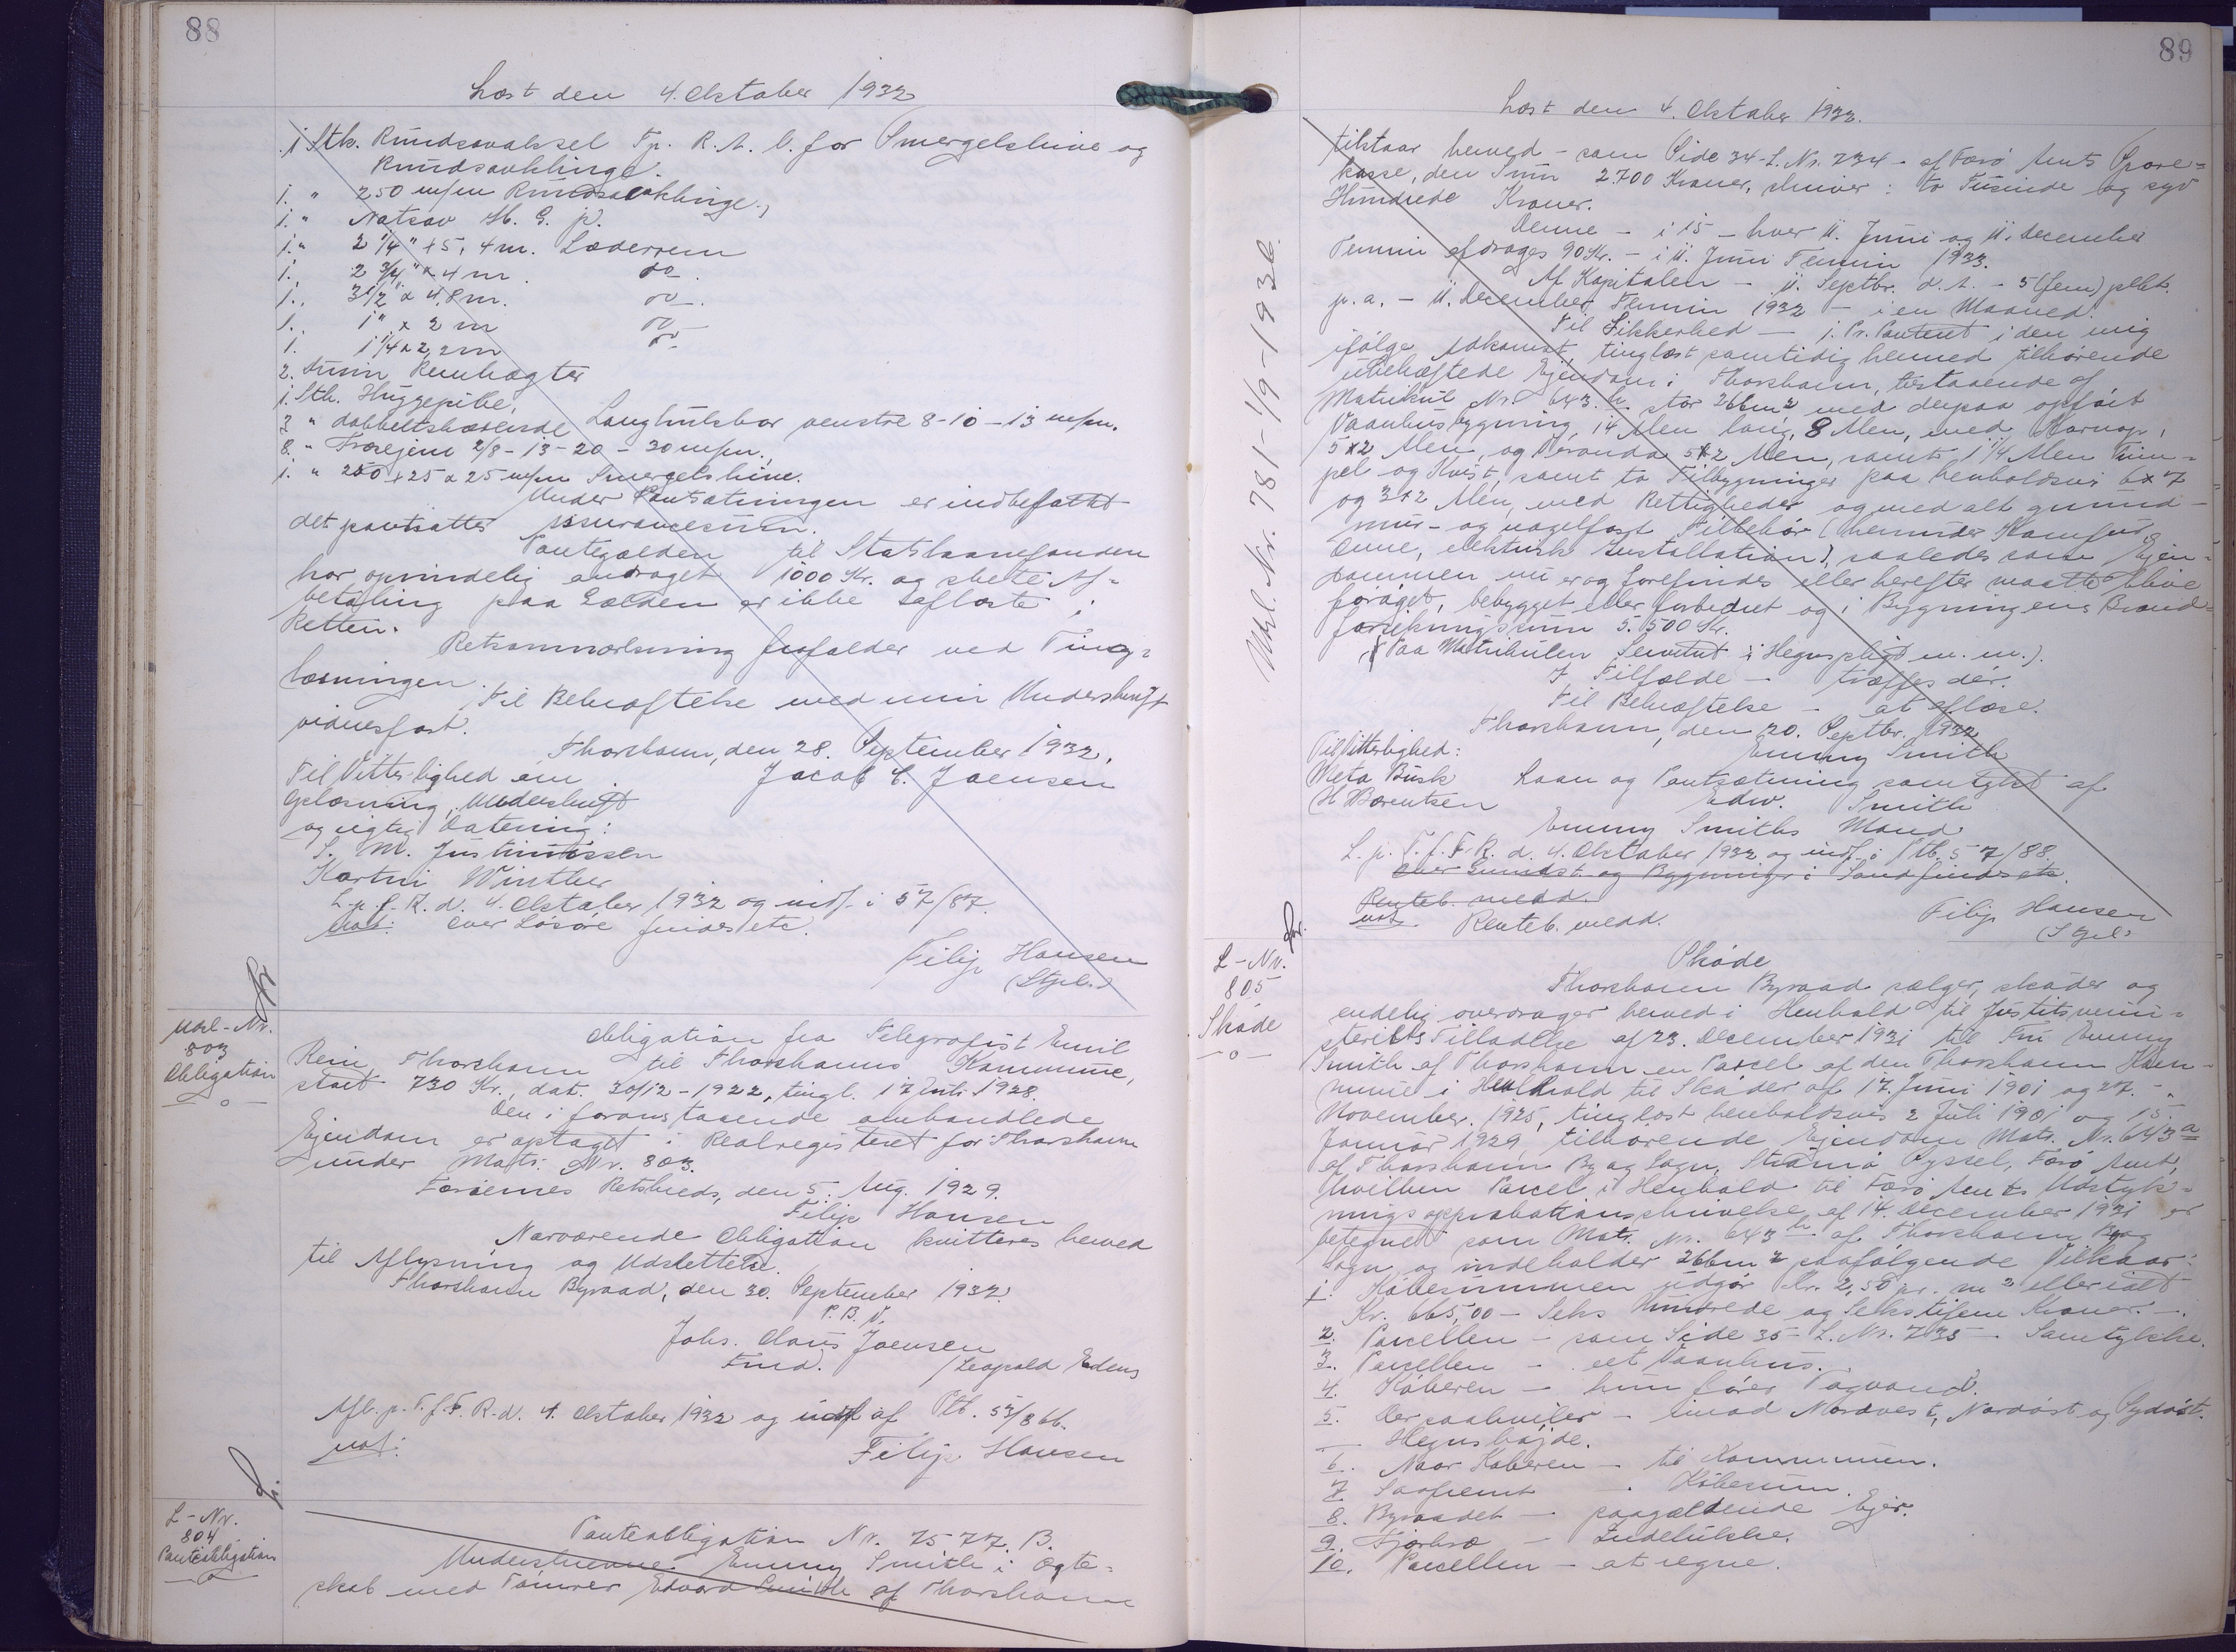 88
Læst den 4. Oktober 1932
1 Stk. Rundsavaksel Tp. R. A. C. for Smergelskive og
Rundsavklinge.
1. " 250 m/m Rundsavklinge.,
1. " Natsav M. G. p.
1. " 2 1/4" x 5, 4 m. Læderrem
1. 2 3/4" x 4 m. do.
1. 3 1/2" x 4,8 m. do.
1. 1" x 2 m do
1. 1 1/4 x 2,2 m do
2. Remhægter
1. Stk. Huggepibe,
3 " dobbeltskærende Langhulsbor venstre 8-10-13 m/m.
8. " Fræsejern 2/8-13-20-30 m/m.
1. " 250 x 25 x 25 m/m Smergelskive.
Under Pantsætningen er indbefattet
det pantsattes Assurancesum.
Pantegælden til Statslaanefonden
har oprindelig andraget 1000 Kr. og skete Af-
betaling paa Gælden er ikke aflæste i
Retten.
Retsanmærkning frafalder ved Ting-
læsningen.
Til Bekræftelse med min Underskrift
vidnesfast.
Thorshavn, den 28. September 1932.
Til Vitterlighed om Jacob C. Joensen
Oplæsning, Underskrift
og rigtig Datering:
S. M. Justinussen
Winther
L. p. f. R. d. 4. Oktober 1932 og indf. i 57/87.
not: over Løsøre findes etc.
Filip Hansen
(Stpl.)
Udsl-Nr.
803
Obligation
-o-
Obligation fra Telegrafist Emil
Rein, Thorshavn til Thorshavns Kommune,
stort 730 Kr., dat. 30/12-1922, tingl. 17 Juli 1928.
Den i foranstaaende omhandlede
Ejendom er optaget i Realregisteret for Thorshavn
under Matr. Nr. 803.
Færøernes Retskreds, den 5. Aug. 1929.
Filip Hansen
Nærværende Obligation kvitteres herved
til Aflysning og Udslettelse.
Thorshavn Byraad, den 30. September 1932.
P. B. V.
Johs. Claus Joensen
Fmd. /Leopold Edens
Afl. p. T. f. F. R. d. 4. Oktober 1932 og udsl af Ptb. 53/366.
not: Filip Hansen
L-Nr.
804
Panteobligation
-o-
Panteobligation Nr. 7577. B.
Underskrevne Emmy Smith i Ægte-
skab med Tømrer Edvard Smith af Thorshavn
89
Læst den 4. Oktober 1932.
tilstaar herved - som Side 34 - L. Nr. 734 - af Færø Amts Spare-
kasse, den Sum 2700 Kroner, skriver: to Tusinde og syv
Hundrede Kroner.
Denne - i 15 - hver 11. Juni og 11. December
Termin afdrages 90 Kr. - i 11. Juni Termin 1933.
Af Kapitalen - 11. Septbr. d. A. - 5 (fem) pCt.
p. a. - 11. December Termin 1932 - i en Maaned.
Til Sikkerhed - 1. Pr. Panteret i den mig
ifølge Adkomst, tinglæst samtidig hermed tilhørende
ubehæftede Ejendom i Thorshavn, bestaaende af
Matrikul Nr. 643 h stor 266 m2 med derpaa opført
Vaanhusbygning, 14 Alen lang, 8 Alen, med Karnap,
5 x 2 Alen, og Veranda 5 x 2 Alen, samt 1 1/4 Alen Trem-
pel og Kvist, samt to Tilbygninger paa henholdsvis 6 x 7
og 3 x 2 Alen, med Rettigheder og med alt grund-
mur- og nagelfast Tilbehør (herunder Komfur,
Ovne, elektrisk Installation), saaledes som Ejen-
dommen nu er og forefindes eller herefter maatte blive
forøget, bebygget eller forbedret og i Bygningens Brand-
forsikringssum 5.500 Kr.
(Paa Matrikulen Servitut i Hegnspligt m. m.).
I Tilfælde - træffes dér.
Til Bekræftelse - at aflæse.
Thorshavn, den 20. Septbr. 1932
Til Vitterlighed: Emmy Smith
Meta Busk Laan og Pantsætning samtykt af
H Berentsen Edw. Smith
Emmy Smiths Mand
L. p. T. f. F. R. d. 4. Oktober 1932 og indf. i Ptb. 57/88
over Grundst. og Bygninger i Sand findes etc.
Renteb. medd.
not. Renteb. medd. Filip Hansen
(Stpl.)
Udsl. Nr. 781-1/9-1936.
L-Nr.
805
Skøde
-o-
Skøde
Thorshavn Byraad sælger, skøder og
endelig overdrager herved i Henhold til Justitsmini-
steriets Tilladelse af 23. December 1931 til Fru Emmy
Smith af Thorshavn en Parcel af den Thorshavn Kom-
mune i Henhold til Skøder af 17. Juni 1901 og 27.
November 1925, tinglæst henholdsvis 2 Juli 1901 og 15.
Januar 1929, tilhørende Ejendom Matr. Nr. 643 a
af Thorshavn By og Sogn, Strømø Syssel, Færø Amt,
hvilken Parcel i Henhold til Færø Amts Udstyk-
ningsapprobationsskrivelse af 14. December 1931 er
betegnet som Matr. Nr. 643 h af Thorshavn By og
Sogn, og indeholder 266 m2 paa følgende Vilkaar:
1. Købesummen udgør Kr. 2,50 pr. m2 eller ialt
Kr. 665,00 - Seks Hundrede og Sekstifem Kroner. -
2. Parcellen - som Side 35 - L. Nr. 735 - Samtykke.
3. Parcellen - eet Vaanhus.
4. Køberen - hun fører Tagvand.
5. Der paahviler - imod Nordvest, Nordøst og Sydøst.
Hegnshøjde.
6. Naar Køberen - til Kommunen.
7 Saafremt - Købesum.
8. Byraadet - paagældende Ejer.
9. Fjorhræ - Indelukke.
10. Parcellen - at regne.